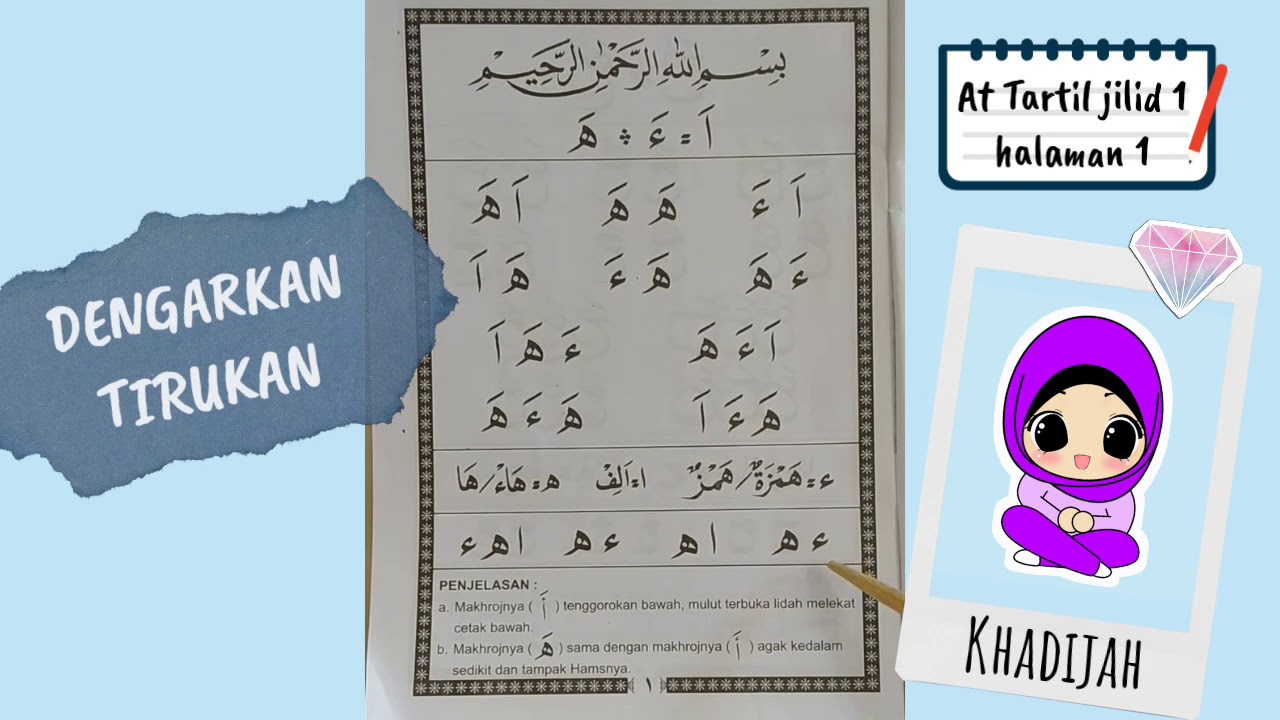 DENGARKAN
TIRUKAN
بِسْمِ اللّٰهِ الرَّحْمٰنِ الرَّحِيْمِ
اَ = ءَ : هَ
اَ ءَ هَ هَ اَ هَ
ءَ هَ هَ ءَ هَ اَ
اَ ءَ هَ ءَ هَ اَ
هَ ءَ اَ هَ ءَ هَ
ء = هَمْزَةٌ/هَمْزٌ ا = اَلِفْ ه = هَاءْ/هَا
ء ه ا ه ء ه ا ه ء
PENJELASAN :
a. Makhrojnya ( أَ ) tenggorokan bawah, mulut terbuka lidah melekat
cetak bawah.
b. Makhrojnya ( هَ ) sama dengan makhrojnya ( أَ ) agak kedalam
sedikit dan tampak Hamsnya.
١
At Tartil jilid 1
halaman 1
KHADIJAH